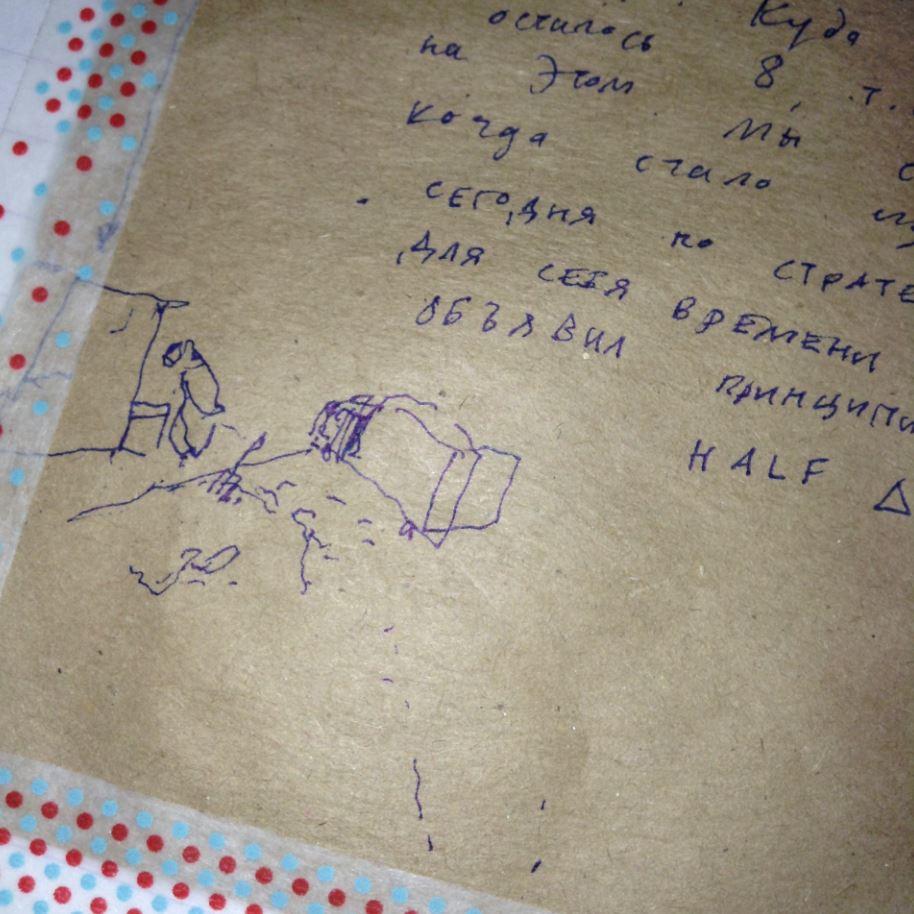 осталось Куда
на этом 8, т.
когда мы
стало
сегодня по СТРАТЕ
для себя ВРЕМЕНИ
ОБЪЯВИЛ ПРИНЦИПИ
HALF Δ